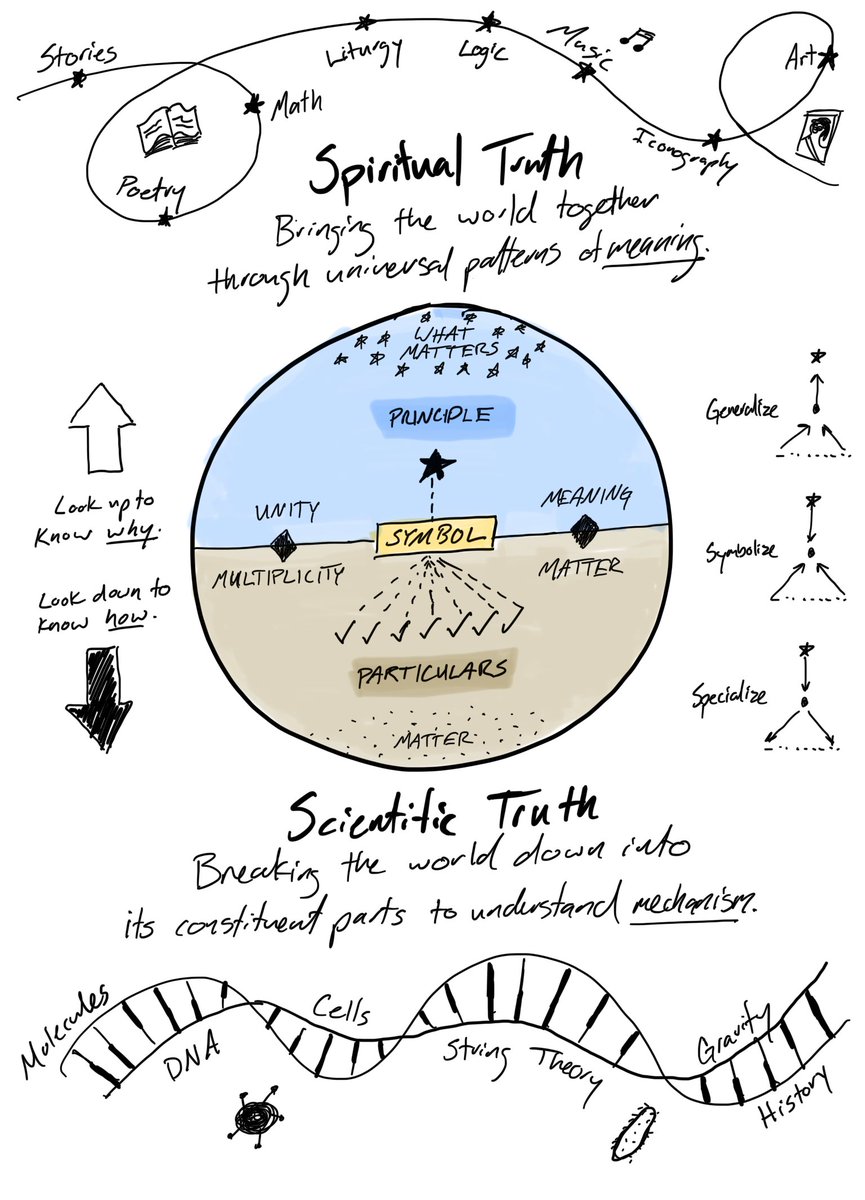 Stories
Liturgy
Logic
Music
Art
Math
Poetry
Iconography
Spiritual Truth
Bringing the world together
through universal patterns of meaning.
WHAT
MATTERS
PRINCIPLE
Generalize
Look up to
know why.
UNITY
MEANING
SYMBOL
MULTIPLICITY
MATTER
Symbolize
Look down to
know how.
PARTICULARS
Specialize
MATTER
Scientific Truth
Breaking the world down into
its constituent parts to understand mechanism.
Molecules
DNA
Cells
String Theory
Gravity
History